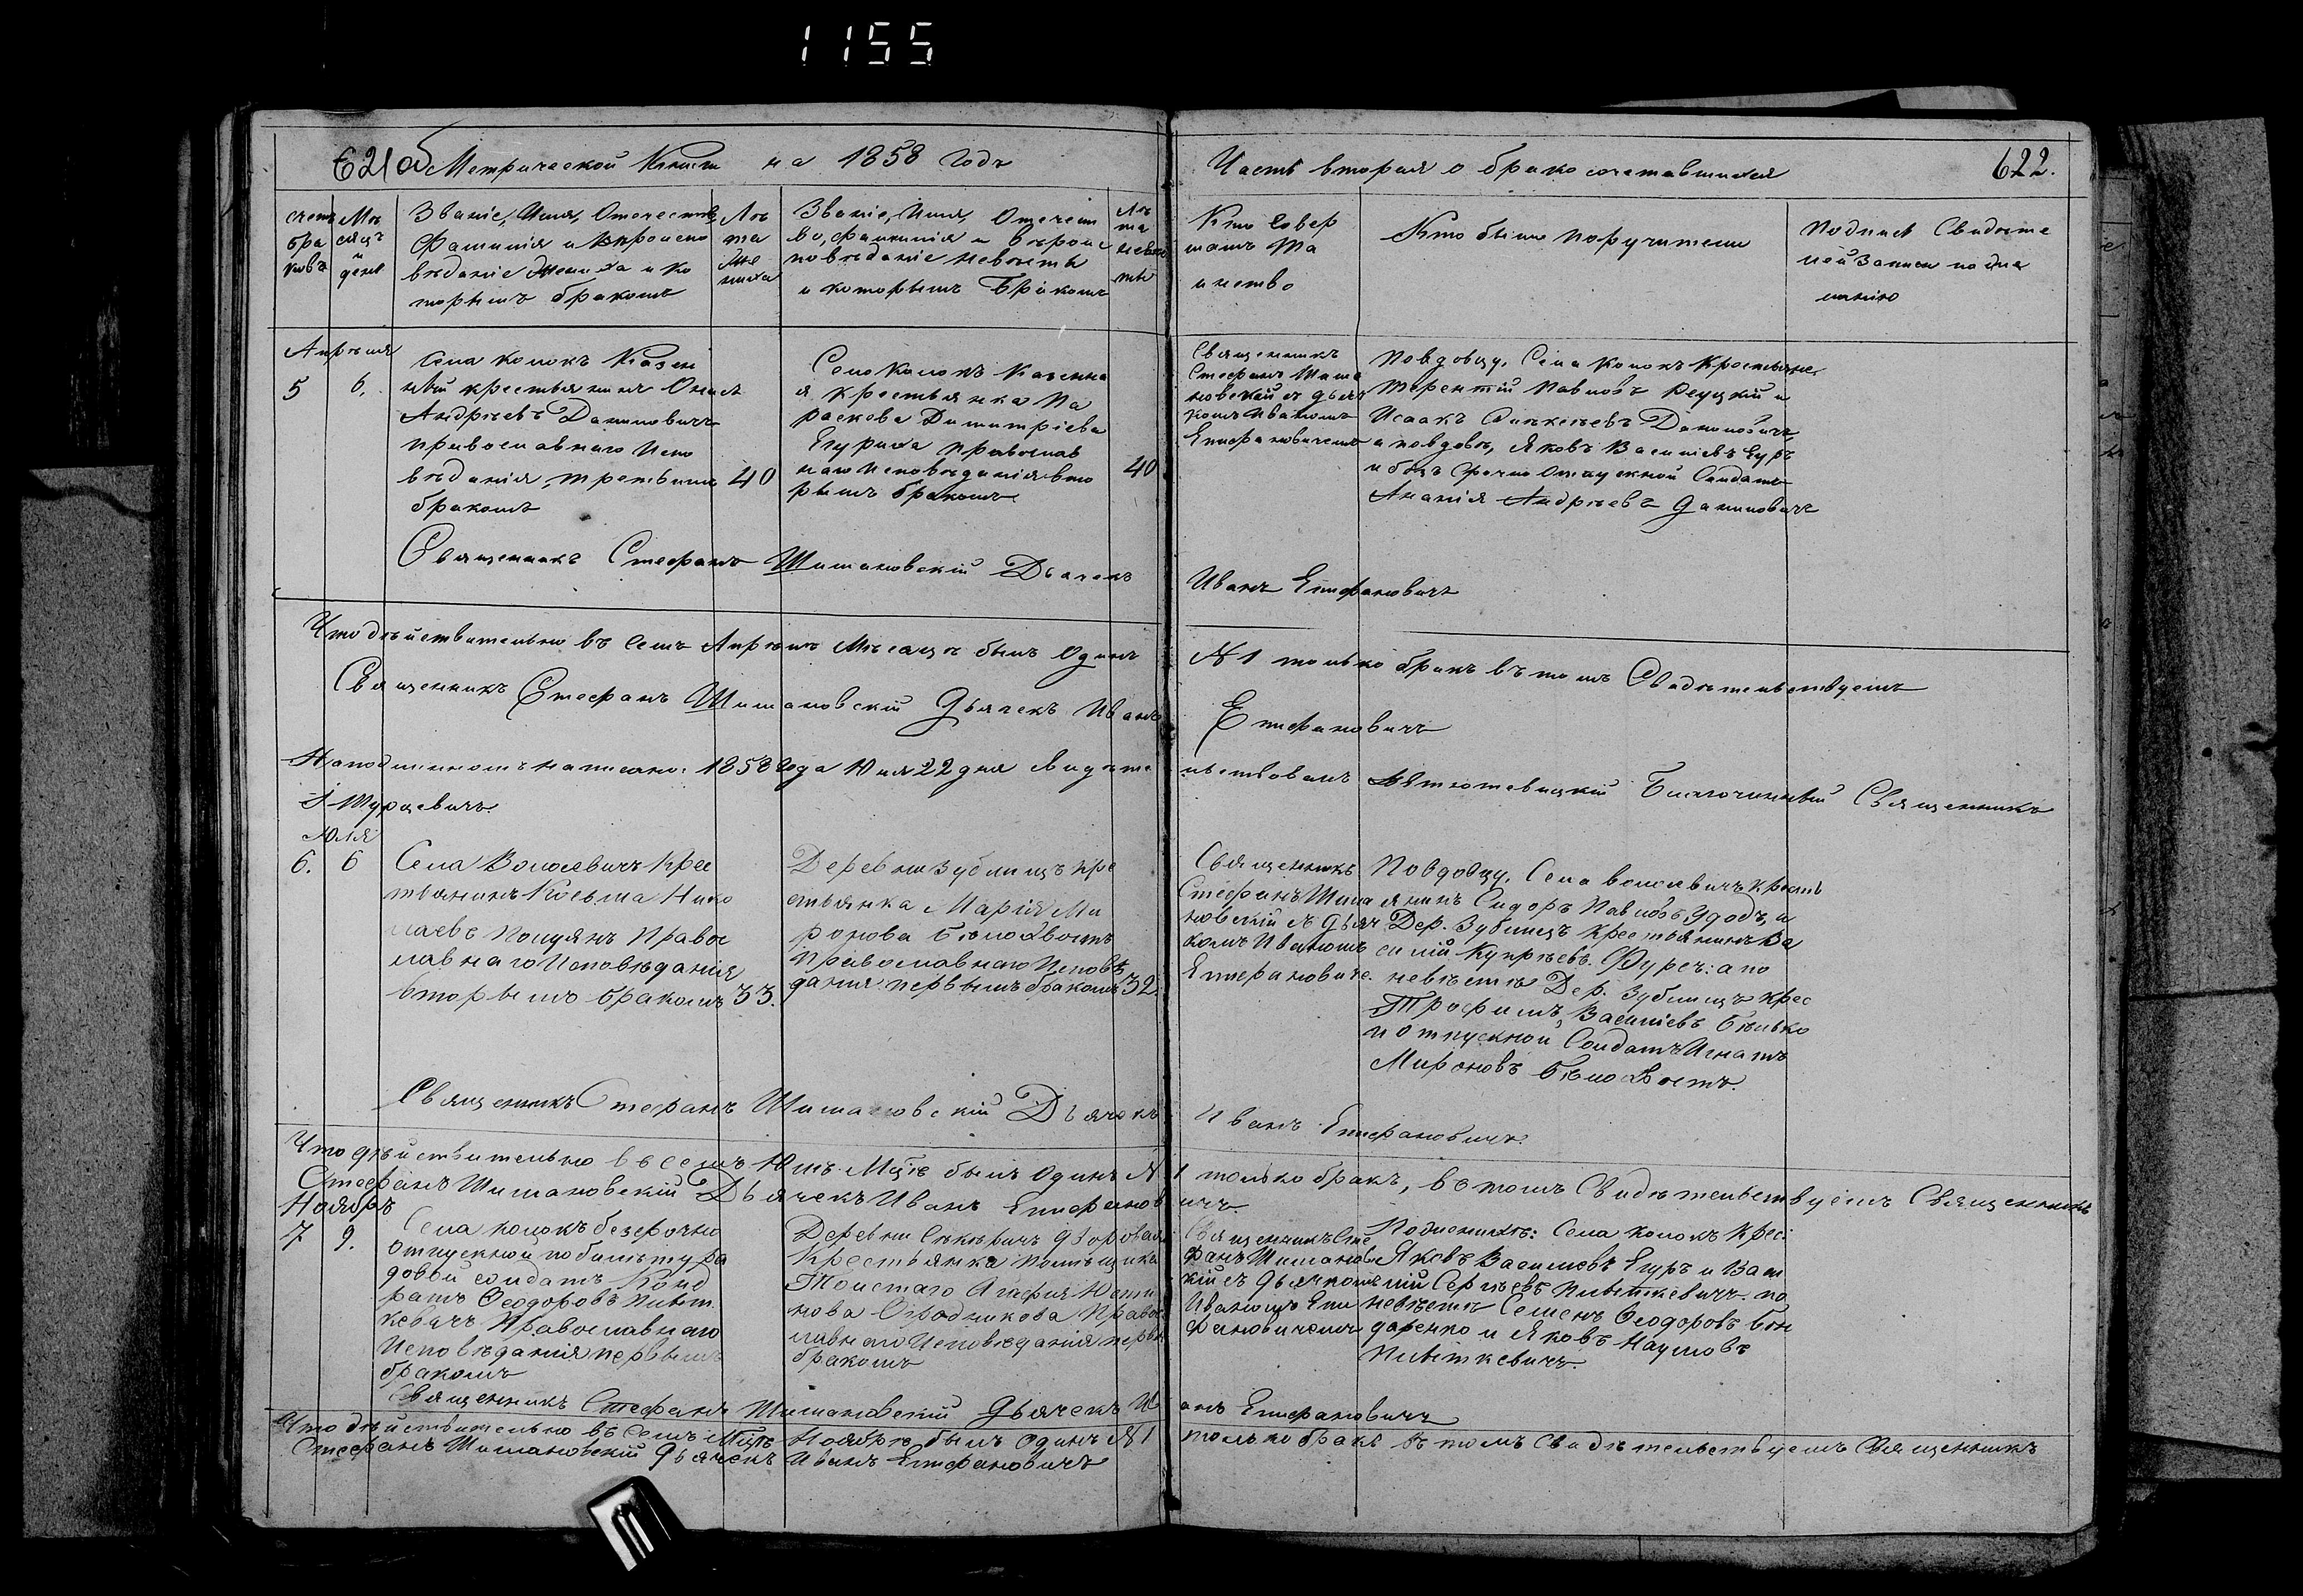 1155
621об Метрической Книги на 1858 годъ
Часть вторая о бракосочетавшихся
622.
счетъ
бра
ковъ
Мѣ
сяцъ
и
день
Званіе, Имя, Отечество
Фамилія и вѣроиспо
вѣданіе Жениха и ко
торымъ бракомъ
Лѣ
та
же
ниха
Званіе, Имя, Отечест
во, фамилія и вѣроис
повѣданіе невѣсты
и которымъ Бракомъ
Лѣ
та
невѣс
ты
Кто Совер
шалъ Та
инство
Кто были поручители
Подпись Свидѣте
лей Записи по же
ланію
Апрѣля
5
6.
Села Колокъ Казен
ный крестьянинъ
Андрѣевъ Даниловичъ
православнаго Испо
вѣданія, третьимъ
бракомъ
40
Село Колокъ Казенна
я крестьянка Па
раскева Димитріева
Егуриха православ
наго исповѣданія вто
рымъ бракомъ
40
Священникъ
Стефанъ Шима
новскій съ дьяч
комъ Иваномъ
Епифановичемъ
По вдовцу, Села Колокъ Крестьяне
Терентій Павловъ Реуцкій и
Исаакъ Даниловичъ,
а по вдовѣ, Яковъ Василіевъ Егуръ
и безсрочно Отпускной Солдатъ
Ананія Андрѣевъ Даниловичъ
Священникъ Стефанъ Шимановскій Дьячекъ
Иванъ Епифановичъ
Что дѣйствительно въ семъ Апрѣлѣ Мѣсяцѣ былъ Одинъ
№ 1 только бракъ въ томъ Свидѣтельствуемъ
Священникъ Стефанъ Шимановскій Дьячекъ Иванъ
Епифановичъ
На подлинномъ написано: 1858 года Юля 22 дня Свидѣте
льствовалъ Благочинный Священникъ
І. Турцевичъ.
Юля
6.
6
Села Волсевичъ Крес
тьянинъ Косьма Нико
лаевъ Полуянъ Правос
лавнаго Исповѣданія
вторымъ бракомъ
33.
Деревни Зубелицъ кре
стьянка Марія Ми
ронова Бѣлохвостъ
Православнаго Исповѣ
данія первымъ бракомъ
32.
Священникъ
Стефанъ Шима
новскій съ дьяч
комъ Иваномъ
Епифановиче.
По вдовцу, Села Волсевичъ Кресть
янинъ Сидоръ Павловъ Удодъ, и
Дер. Зубелицъ крестьянинъ Ва
силій Купрѣевъ. Фурсъ: а по
невѣстѣ Дер. Зубелицъ крес
Трофимъ, Василіевъ Бѣлько
и отпускной Солдатъ Игнатъ
Мироновъ Бѣлохвостъ.
Священникъ Стефанъ Шимановскій Дьячекъ
Иванъ Епифановичъ.
Что дѣйствительно въ семъ Юлѣ Мцѣ былъ Одинъ №
1 только бракъ, въ томъ Свидѣтельствуемъ Священникъ
Стефанъ Шимановскій Дьячекъ Иванъ Епифанов
ичъ.
Ноября
7
9.
Села Колокъ безсрочно
Отпускной по билету ря
довой солдатъ Конд
ратъ Ѳеодоровъ Пивет
кевичъ Православнаго
Исповѣданія первымъ
бракомъ
Деревни Секеричъ дворовая
Крестьянка помѣщика
Толстаго Агафія Юсти
нова Огородникова Правос
лавнаго Исповѣданія первы
бракомъ
Священникъ Сте
фанъ Шимановс
кій съ дьячкомъ
Иваномъ Епи
фановичемъ
По женихѣ: Села Колокъ Крес:
Яковъ Василіевъ Егуръ и Васи
лій Сергѣевъ Пиветкевичъ. по
невѣстѣ Семенъ Ѳеодоровъ Бон
даренко и Яковъ Наумовъ
Пиветкевичъ.
Священникъ Стефанъ Шимановскій Дьячекъ Ив
анъ Епифановичъ
Что дѣйствительно въ семъ Мцѣ Ноябрѣ былъ Одинъ №1
только бракъ въ томъ Свидѣтельствуемъ Священникъ
Стефанъ Шимановскій Дьячекъ Иванъ Епифановичъ